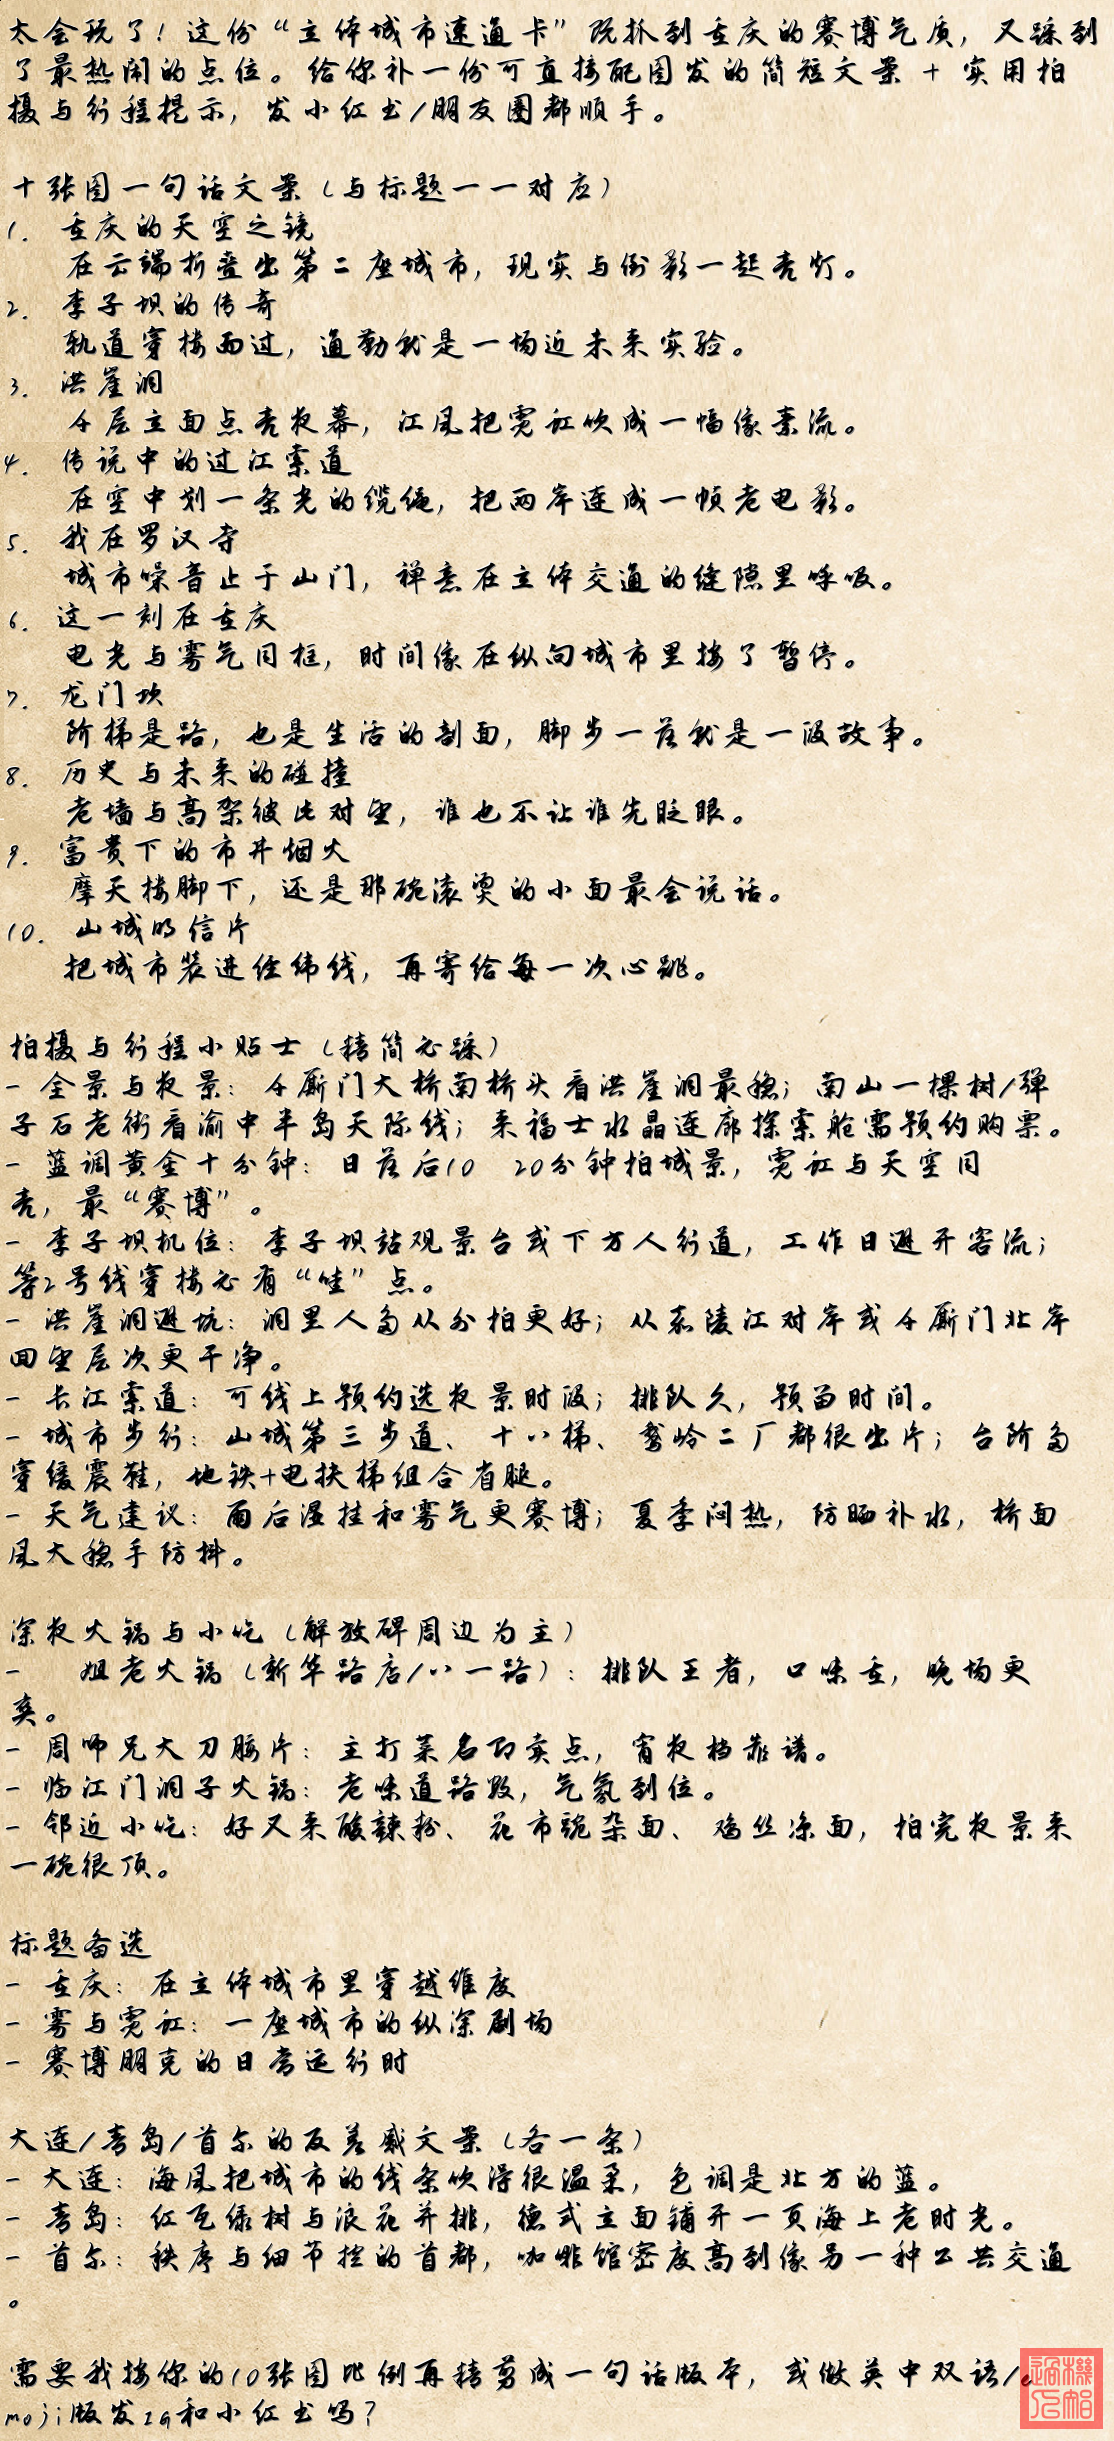 太会玩了！这份“立体城市速通卡”既抓到重庆的赛博气质，又踩到
了最热闹的点位。给你补一份可直接配图发的简短文案 + 实用拍
摄与行程提示，发小红书/朋友圈都顺手。
十张图一句话文案（与标题一一对应）
1. 重庆的天空之镜
在云端折叠出第二座城市，现实与倒影一起亮灯。
2. 李子坝的传奇
轨道穿楼而过，通勤就是一场近未来实验。
3. 洪崖洞
千层立面点亮夜幕，江风把霓虹吹成一幅像素流。
4. 传说中的过江索道
在空中划一条光的缆绳，把两岸连成一帧老电影。
5. 我在罗汉寺
城市噪音止于山门，禅意在立体交通的缝隙里呼吸。
6. 这一刻在重庆
电光与雾气同框，时间像在纵向城市里按了暂停。
7. 龙门坎
阶梯是路，也是生活的剖面，脚步一落就是一段故事。
8. 历史与未来的碰撞
老墙与高架彼此对望，谁也不让谁先眨眼。
9. 富贵下的市井烟火
摩天楼脚下，还是那碗滚烫的小面最会说话。
10. 山城明信片
把城市装进经纬线，再寄给每一次心跳。
拍摄与行程小贴士（精简必踩）
- 全景与夜景：千厮门大桥南桥头看洪崖洞最稳；南山一棵树/弹
子石老街看渝中半岛天际线；来福士水晶连廊探索舱需预约购票。
- 蓝调黄金十分钟：日落后10 20分钟拍城景，霓虹与天空同
亮，最“赛博”。
- 李子坝机位：李子坝站观景台或下方人行道，工作日避开客流；
等2号线穿楼必有“哇”点。
- 洪崖洞避坑：洞里人多从外拍更好；从嘉陵江对岸或千厮门北岸
回望层次更干净。
- 长江索道：可线上预约选夜景时段；排队久，预留时间。
- 城市步行：山城第三步道、十八梯、鹅岭二厂都很出片；台阶多
穿缓震鞋，地铁+电扶梯组合省腿。
- 天气建议：雨后湿挂和雾气更赛博；夏季闷热，防晒补水，桥面
风大稳手防抖。
深夜火锅与小吃（解放碑周边为主）
- 姐老火锅（新华路店/八一路）：排队王者，口味重，晚场更
爽。
- 周师兄大刀腰片：主打菜名即卖点，宵夜档靠谱。
- 临江门洞子火锅：老味道路数，气氛到位。
- 邻近小吃：好又来酸辣粉、花市豌杂面、鸡丝凉面，拍完夜景来
一碗很顶。
标题备选
- 重庆：在立体城市里穿越维度
- 雾与霓虹：一座城市的纵深剧场
- 赛博朋克的日常运行时
大连/青岛/首尔的反差感文案（各一条）
- 大连：海风把城市的线条吹得很温柔，色调是北方的蓝。
- 青岛：红瓦绿树与浪花并排，德式立面铺开一页海上老时光。
- 首尔：秩序与细节控的首都，咖啡馆密度高到像另一种公共交通
。
需要我按你的10张图比例再精剪成一句话版本，或做英中双语/e
moji版发IG和小红书吗？